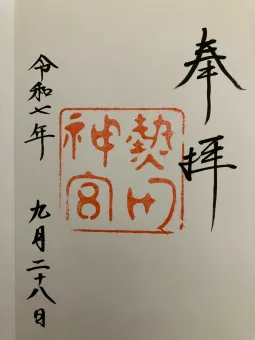 奉拝
熱田
神宮
令和七年 九月二十八日